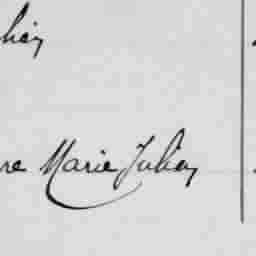 lien
re Marie Julien